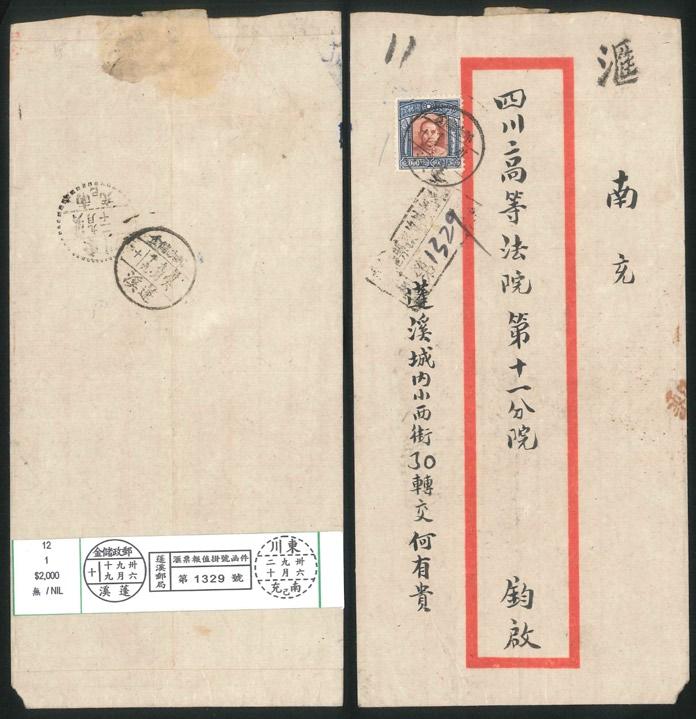 12
1
$2,000
無 / NIL
郵政儲金
卅六
十九
九月
十
蓬溪
蓬溪郵局
滙票報值掛號函件
第 1329 號
東川
卅六
九十
二十
南充
11
滙
南充
四川高等法院第十一分院
鈞啟
1329
蓬溪城內小西街30轉交何有貴